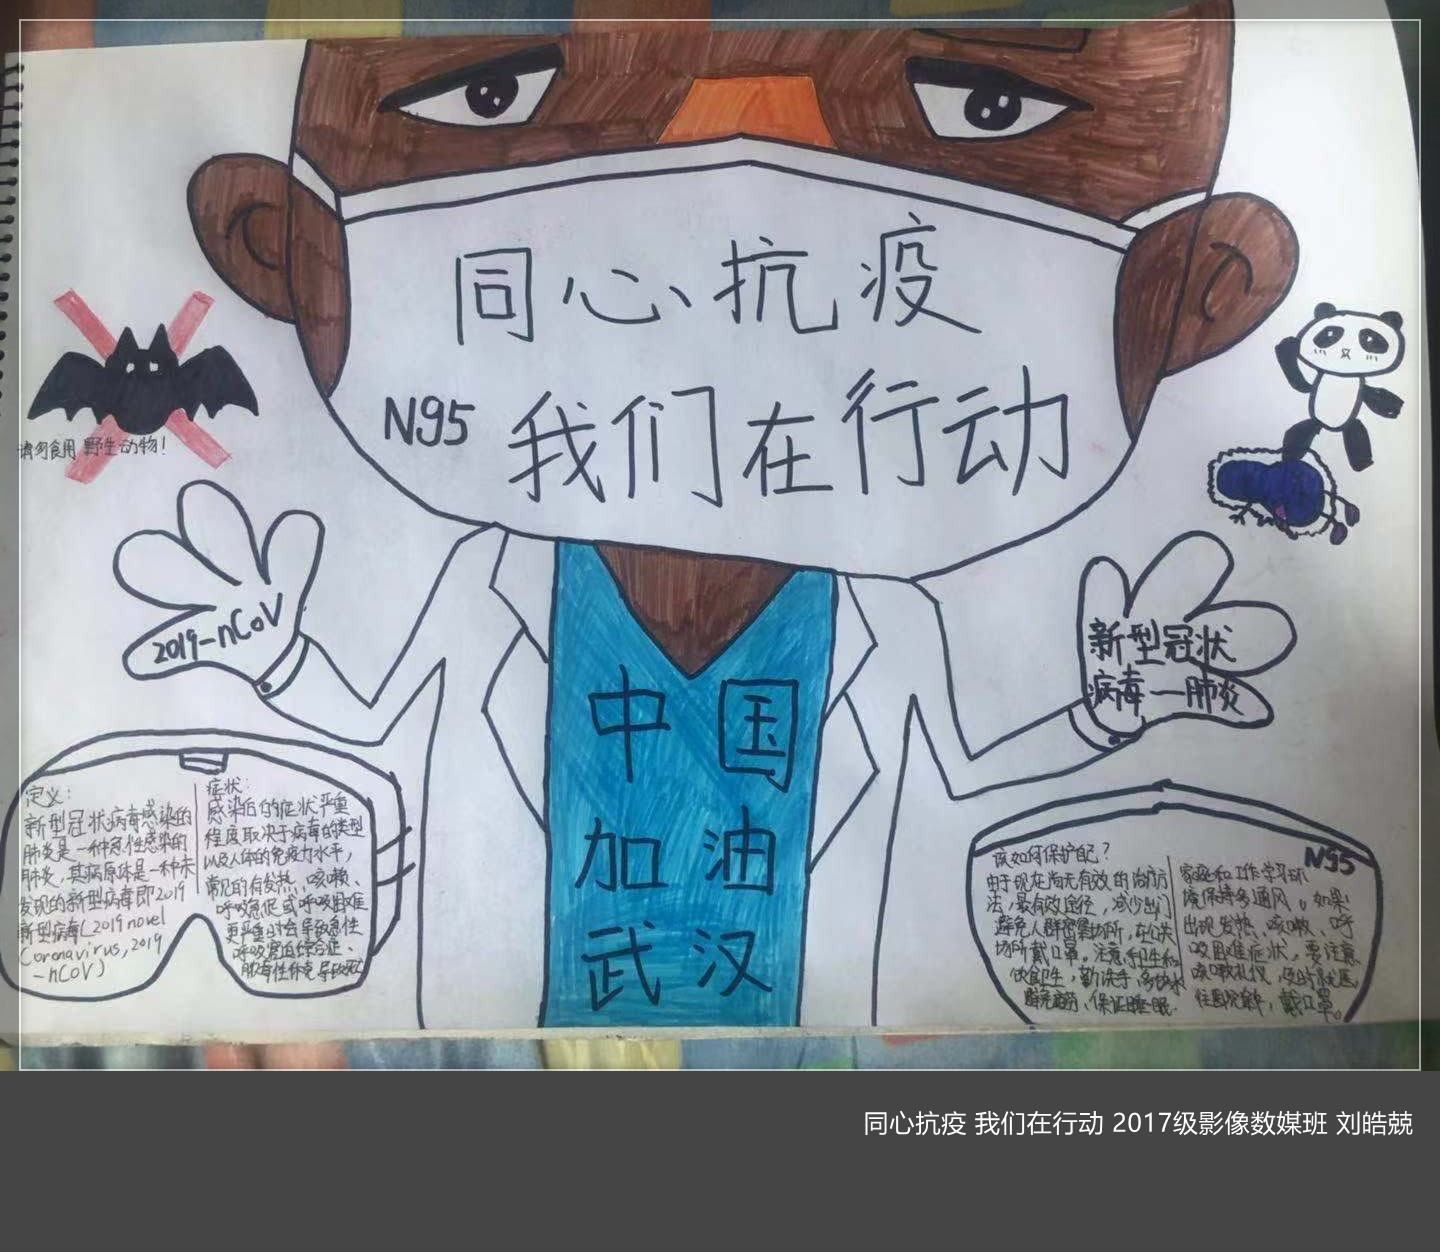 同心抗疫
N95 我们在行动
请勿食用 野生动物！
2019-nCoV
新型冠状
病毒—肺炎
中国
加油
武汉
定义：
新型冠状病毒感染的
肺炎是一种急性感染的
肺炎，其病原体是一种未
发现的新型病毒即2019
新型病毒（2019 novel
Coronavirus, 2019
-nCoV）
症状：
感染后的症状严重
程度取决于病毒的类型
以及人体的免疫力水平，
常见的有发热、咳嗽、
呼吸急促或呼吸困难
更严重时会导致急性
呼吸窘迫综合征、
脓毒性休克 导致死
N95
该如何保护自己？
由于现在尚无有效的治疗方
法，最有效途径，减少出门
避免人群密集场所，在公共
场所戴口罩。注意手卫生和
饮食卫生，勤洗手，多喝水
避免疲劳、保证睡眠
家庭和工作学习环
境保持多通风。如果
出现发热、咳嗽、呼
吸困难症状，要注意
咳嗽礼仪，及时就医
往医院就医，戴口罩。
同心抗疫 我们在行动 2017级影像数媒班 刘皓兢